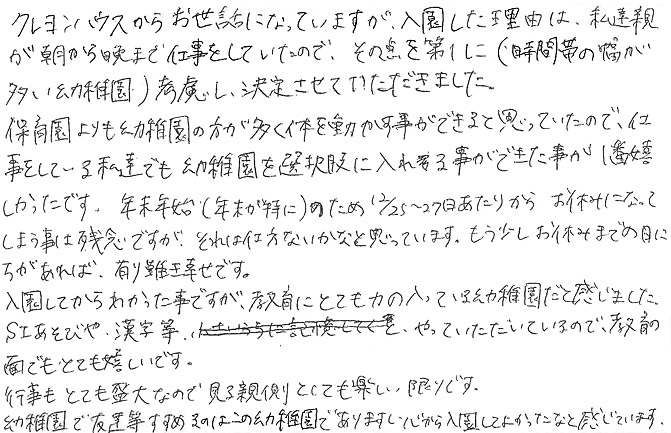 クレヨンハウスからお世話になっていますが、入園した理由は、私達親
が朝から晩まで仕事をしていたので、その点を第1に(時間帯の幅が
多い幼稚園)考慮し、決定させていただきました。
保育園よりも幼稚園の方が多く体を動かす事ができると思っていたので、仕
事をしている私達でも幼稚園を選択肢に入れる事ができた事が1番嬉
しかったです。年末年始(年末が特に)のため12/25~27日あたりからお休みになって
しまう事は残念ですが、それは仕方ないかなと思っています。もう少しお休みまでの日に
ちがあれば、有り難き幸せです。
入園してからわかった事ですが、教育にとても力の入っている幼稚園だと感じました。
SIあそびや、漢字等、やっていただいているので、教育の
面でもとても嬉しいです。
行事もとても盛大なので見る親側としても楽しい限りです。
幼稚園で友達等すすめるのはこの幼稚園でありますし、心から入園してよかったなと感じています。